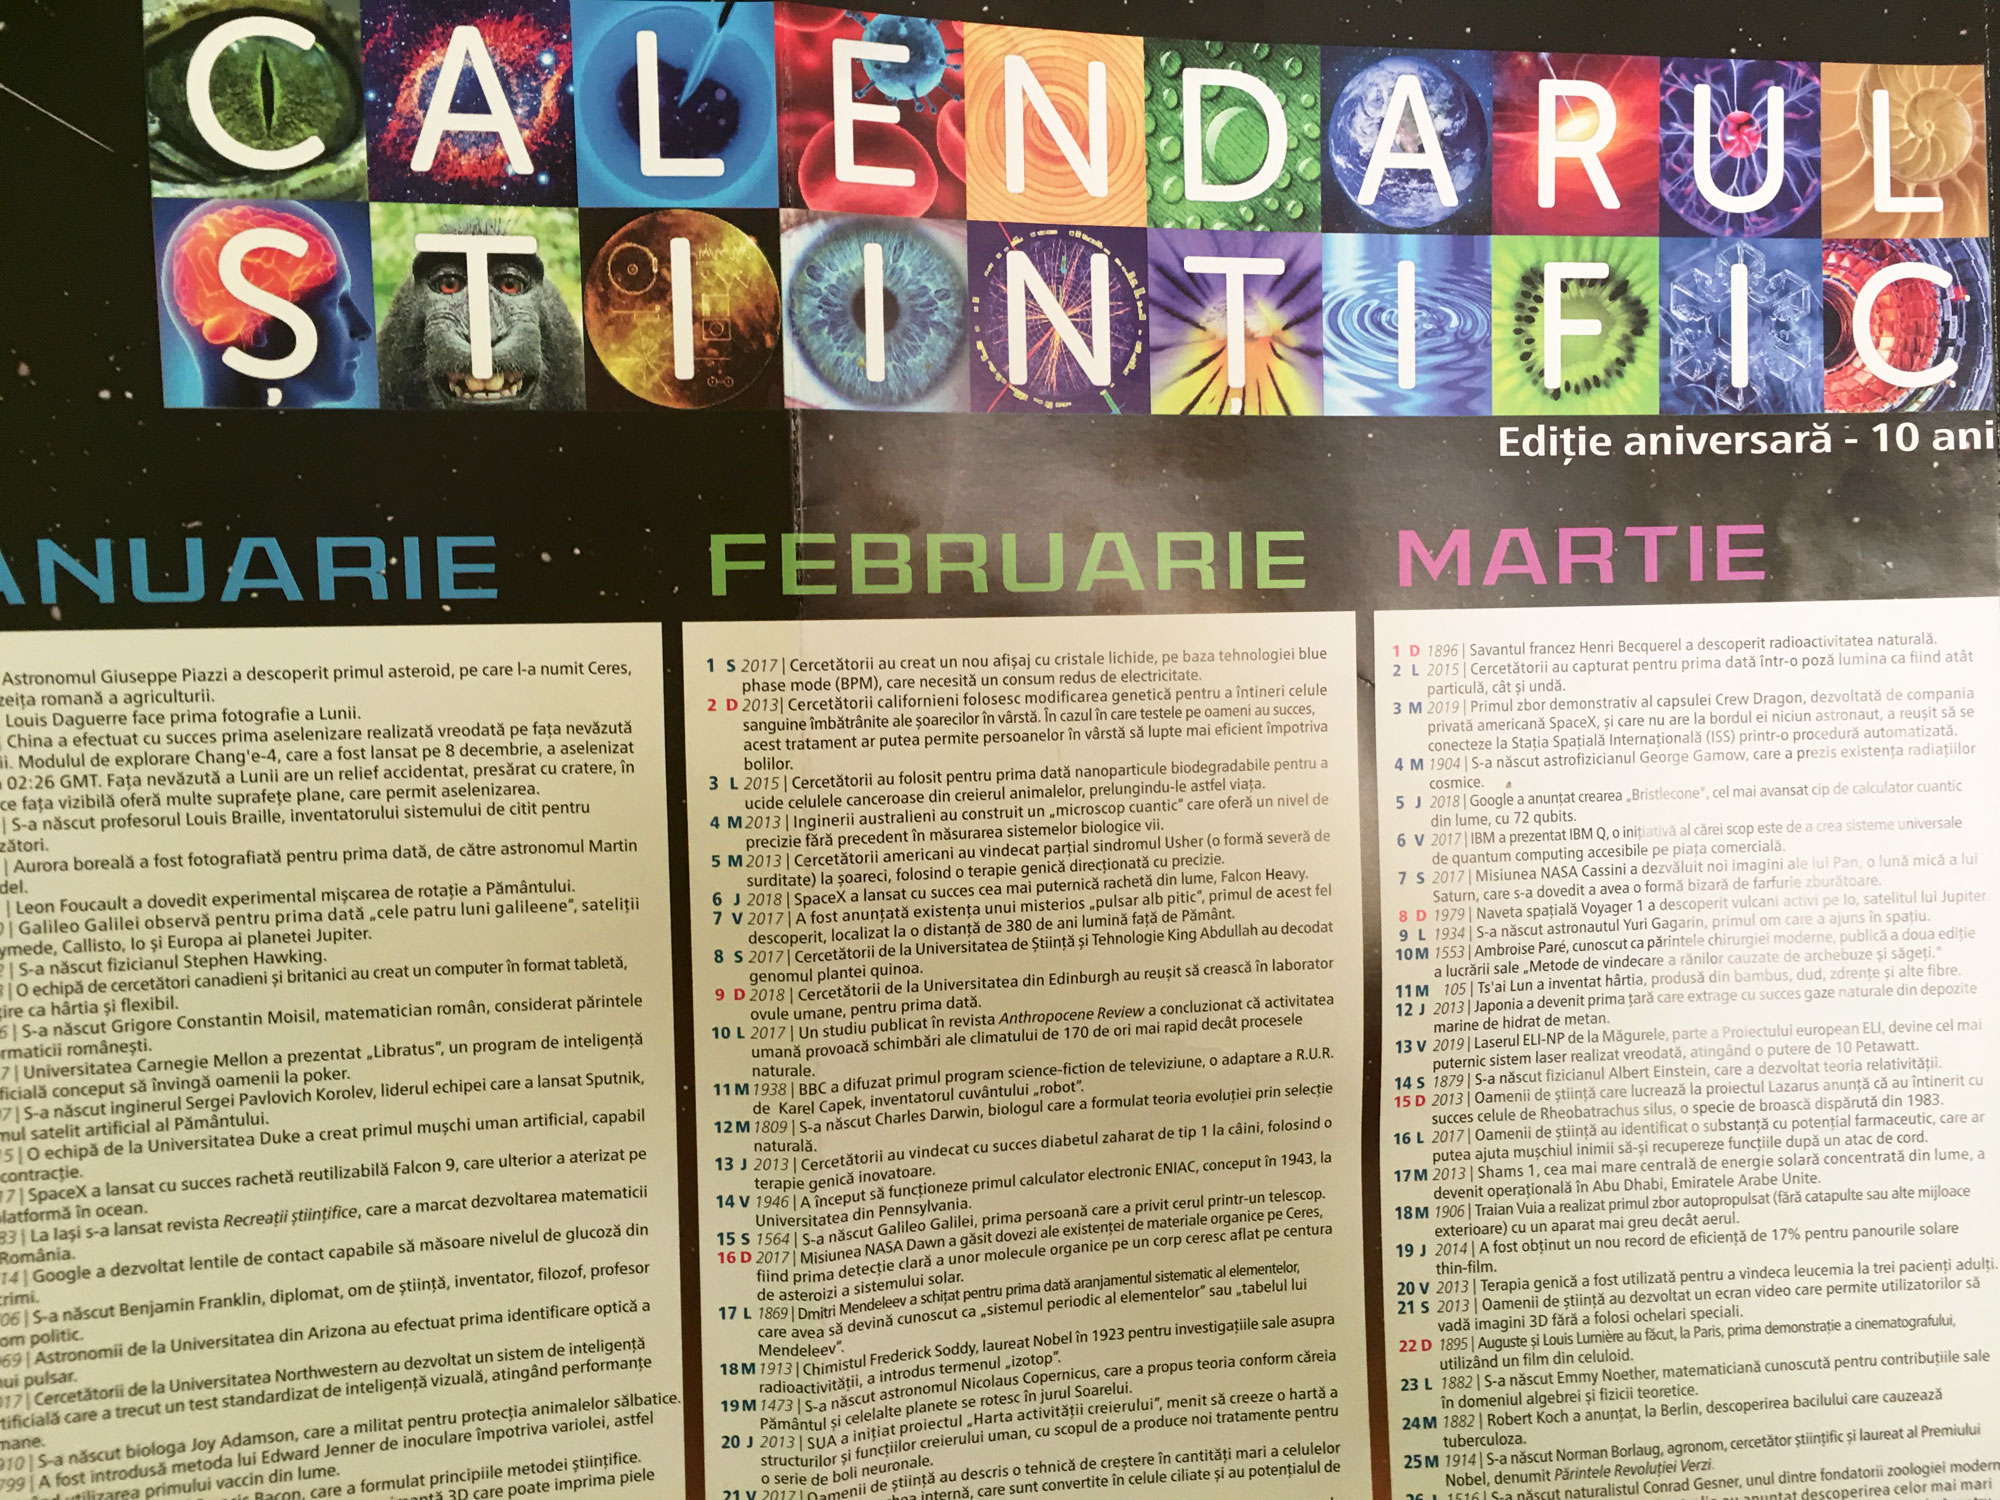 CALENDARUL
ȘTIINȚIFIC
Ediție aniversară - 10 ani
ANUARIE
Astronomul Giuseppe Piazzi a descoperit primul asteroid, pe care l-a numit Ceres,
zeița romană a agriculturii.
Louis Daguerre face prima fotografie a Lunii.
China a efectuat cu succes prima aselenizare realizată vreodată pe fața nevăzută
ii. Modulul de explorare Chang'e-4, care a fost lansat pe 8 decembrie, a aselenizat
02:26 GMT. Fața nevăzută a Lunii are un relief accidentat, presărat cu cratere, în
ce fața vizibilă oferă multe suprafețe plane, care permit aselenizarea.
| S-a născut profesorul Louis Braille, inventatorului sistemului de citit pentru
zători.
| Aurora boreală a fost fotografiată pentru prima dată, de către astronomul Martin
del.
| Leon Foucault a dovedit experimental mișcarea de rotație a Pământului.
| Galileo Galilei observă pentru prima dată „cele patru luni galileene”, sateliții
ymede, Callisto, Io și Europa ai planetei Jupiter.
| S-a născut fizicianul Stephen Hawking.
| O echipă de cercetători canadieni și britanici au creat un computer în format tabletă,
țire ca hârtia și flexibil.
6 | S-a născut Grigore Constantin Moisil, matematician român, considerat părintele
rmaticii românești.
7 | Universitatea Carnegie Mellon a prezentat „Libratus”, un program de inteligență
ficială conceput să învingă oamenii la poker.
7 | S-a născut inginerul Sergei Pavlovich Korolev, liderul echipei care a lansat Sputnik,
mul satelit artificial al Pământului.
5 | O echipă de la Universitatea Duke a creat primul mușchi uman artificial, capabil
contracție.
17 | SpaceX a lansat cu succes rachetă reutilizabilă Falcon 9, care ulterior a aterizat pe
platformă în ocean.
83 | La Iași s-a lansat revista Recreații științifice, care a marcat dezvoltarea matematicii
România.
14 | Google a dezvoltat lentile de contact capabile să măsoare nivelul de glucoză din
crimi.
06 | S-a născut Benjamin Franklin, diplomat, om de știință, inventator, filozof, profesor
om politic.
969 | Astronomii de la Universitatea din Arizona au efectuat prima identificare optică a
nui pulsar.
017 | Cercetătorii de la Universitatea Northwestern au dezvoltat un sistem de inteligență
tificială care a trecut un test standardizat de inteligență vizuală, atingând performanțe
mane.
910 | S-a născut biologa Joy Adamson, care a militat pentru protecția animalelor sălbatice.
799 | A fost introdusă metoda lui Edward Jenner de inoculare împotriva variolei, astfel
utilizarea primului vaccin din lume.
Bacon, care a formulat principiile metodei științifice.
3D care poate imprima piele
FEBRUARIE
1 S 2017 | Cercetătorii au creat un nou afișaj cu cristale lichide, pe baza tehnologiei blue
phase mode (BPM), care necesită un consum redus de electricitate.
2 D 2013| Cercetătorii californieni folosesc modificarea genetică pentru a întineri celule
sanguine îmbătrânite ale șoarecilor în vârstă. În cazul în care testele pe oameni au succes,
acest tratament ar putea permite persoanelor în vârstă să lupte mai eficient împotriva
bolilor.
3 L 2015 | Cercetătorii au folosit pentru prima dată nanoparticule biodegradabile pentru a
ucide celulele canceroase din creierul animalelor, prelungindu-le astfel viața.
4 M 2013 | Inginerii australieni au construit un „microscop cuantic” care oferă un nivel de
precizie fără precedent în măsurarea sistemelor biologice vii.
5 M 2013 | Cercetătorii americani au vindecat parțial sindromul Usher (o formă severă de
surditate) la șoareci, folosind o terapie genică direcționată cu precizie.
6 J 2018 | SpaceX a lansat cu succes cea mai puternică rachetă din lume, Falcon Heavy.
7 V 2017 | A fost anunțată existența unui misterios „pulsar alb pitic”, primul de acest fel
descoperit, localizat la o distanță de 380 de ani lumină față de Pământ.
8 S 2017 | Cercetătorii de la Universitatea de Știință și Tehnologie King Abdullah au decodat
genomul plantei quinoa.
9 D 2018 | Cercetătorii de la Universitatea din Edinburgh au reușit să crească în laborator
ovule umane, pentru prima dată.
10 L 2017 | Un studiu publicat în revista Anthropocene Review a concluzionat că activitatea
umană provoacă schimbări ale climatului de 170 de ori mai rapid decât procesele
naturale.
11 M 1938 | BBC a difuzat primul program science-fiction de televiziune, o adaptare a R.U.R.
de Karel Capek, inventatorul cuvântului „robot”.
12 M 1809 | S-a născut Charles Darwin, biologul care a formulat teoria evoluției prin selecție
naturală.
13 J 2013 | Cercetătorii au vindecat cu succes diabetul zaharat de tip 1 la câini, folosind o
terapie genică inovatoare.
14 V 1946 | A început să funcționeze primul calculator electronic ENIAC, conceput în 1943, la
Universitatea din Pennsylvania.
15 S 1564 | S-a născut Galileo Galilei, prima persoană care a privit cerul printr-un telescop.
16 D 2017 | Misiunea NASA Dawn a găsit dovezi ale existenței de materiale organice pe Ceres,
fiind prima detecție clară a unor molecule organice pe un corp ceresc aflat pe centura
de asteroizi a sistemului solar.
17 L 1869 | Dmitri Mendeleev a schițat pentru prima dată aranjamentul sistematic al elementelor,
care avea să devină cunoscut ca „sistemul periodic al elementelor” sau „tabelul lui
Mendeleev”.
18 M 1913 | Chimistul Frederick Soddy, laureat Nobel în 1923 pentru investigațiile sale asupra
radioactivității, a introdus termenul „izotop”.
19 M 1473 | S-a născut astronomul Nicolaus Copernicus, care a propus teoria conform căreia
Pământul și celelalte planete se rotesc în jurul Soarelui.
20 J 2013 | SUA a inițiat proiectul „Harta activității creierului”, menit să creeze o hartă a
structurilor și funcțiilor creierului uman, cu scopul de a produce noi tratamente pentru
o serie de boli neuronale.
21 V 2017 | Oamenii de știință au descris o tehnică de creștere în cantități mari a celulelor
internă, care sunt convertite în celule ciliate și au potențialul de
MARTIE
1 D 1896 | Savantul francez Henri Becquerel a descoperit radioactivitatea naturală.
2 L 2015 | Cercetătorii au capturat pentru prima dată într-o poză lumina ca fiind atât
particulă, cât și undă.
3 M 2019 | Primul zbor demonstrativ al capsulei Crew Dragon, dezvoltată de compania
privată americană SpaceX, și care nu are la bordul ei niciun astronaut, a reușit să se
conecteze la Stația Spațială Internațională (ISS) printr-o procedură automatizată.
4 M 1904 | S-a născut astrofizicianul George Gamow, care a prezis existența radiațiilor
cosmice.
5 J 2018 | Google a anunțat crearea „Bristlecone”, cel mai avansat cip de calculator cuantic
din lume, cu 72 qubits.
6 V 2017 | IBM a prezentat IBM Q, o inițiativă al cărei scop este de a crea sisteme universale
de quantum computing accesibile pe piața comercială.
7 S 2017 | Misiunea NASA Cassini a dezvăluit noi imagini ale lui Pan, o lună mică a lui
Saturn, care s-a dovedit a avea o formă bizară de farfurie zburătoare.
8 D 1979 | Naveta spațială Voyager 1 a descoperit vulcani activi pe Io, satelitul lui Jupiter.
9 L 1934 | S-a născut astronautul Yuri Gagarin, primul om care a ajuns în spațiu.
10 M 1553 | Ambroise Paré, cunoscut ca părintele chirurgiei moderne, publică a doua ediție
a lucrării sale „Metode de vindecare a rănilor cauzate de archebuze și săgeți.”
11 M 105 | Ts'ai Lun a inventat hârtia, produsă din bambus, dud, zdrențe și alte fibre.
12 J 2013 | Japonia a devenit prima țară care extrage cu succes gaze naturale din depozite
marine de hidrat de metan.
13 V 2019 | Laserul ELI-NP de la Măgurele, parte a Proiectului european ELI, devine cel mai
puternic sistem laser realizat vreodată, atingând o putere de 10 Petawatt.
14 S 1879 | S-a născut fizicianul Albert Einstein, care a dezvoltat teoria relativității.
15 D 2013 | Oamenii de știință care lucrează la proiectul Lazarus anunță că au întinerit cu
succes celule de Rheobatrachus silus, o specie de broască dispărută din 1983.
16 L 2017 | Oamenii de știință au identificat o substanță cu potențial farmaceutic, care ar
putea ajuta mușchiul inimii să-și recupereze funcțiile după un atac de cord.
17 M 2013 | Shams 1, cea mai mare centrală de energie solară concentrată din lume, a
devenit operațională în Abu Dhabi, Emiratele Arabe Unite.
18 M 1906 | Traian Vuia a realizat primul zbor autopropulsat (fără catapulte sau alte mijloace
exterioare) cu un aparat mai greu decât aerul.
19 J 2014 | A fost obținut un nou record de eficiență de 17% pentru panourile solare
thin-film.
20 V 2013 | Terapia genică a fost utilizată pentru a vindeca leucemia la trei pacienți adulți.
21 S 2013 | Oamenii de știință au dezvoltat un ecran video care permite utilizatorilor să
vadă imagini 3D fără a folosi ochelari speciali.
22 D 1895 | Auguste și Louis Lumière au făcut, la Paris, prima demonstrație a cinematografului,
utilizând un film din celuloid.
23 L 1882 | S-a născut Emmy Noether, matematiciană cunoscută pentru contribuțiile sale
în domeniul algebrei și fizicii teoretice.
24 M 1882 | Robert Koch a anunțat, la Berlin, descoperirea bacilului care cauzează
tuberculoza.
25 M 1914 | S-a născut Norman Borlaug, agronom, cercetător științific și laureat al Premiului
Nobel, denumit Părintele Revoluției Verzi.
26 J 1516 | S-a născut naturalistul Conrad Gesner, unul dintre fondatorii zoologiei modern
anunțat descoperirea celor mai mari